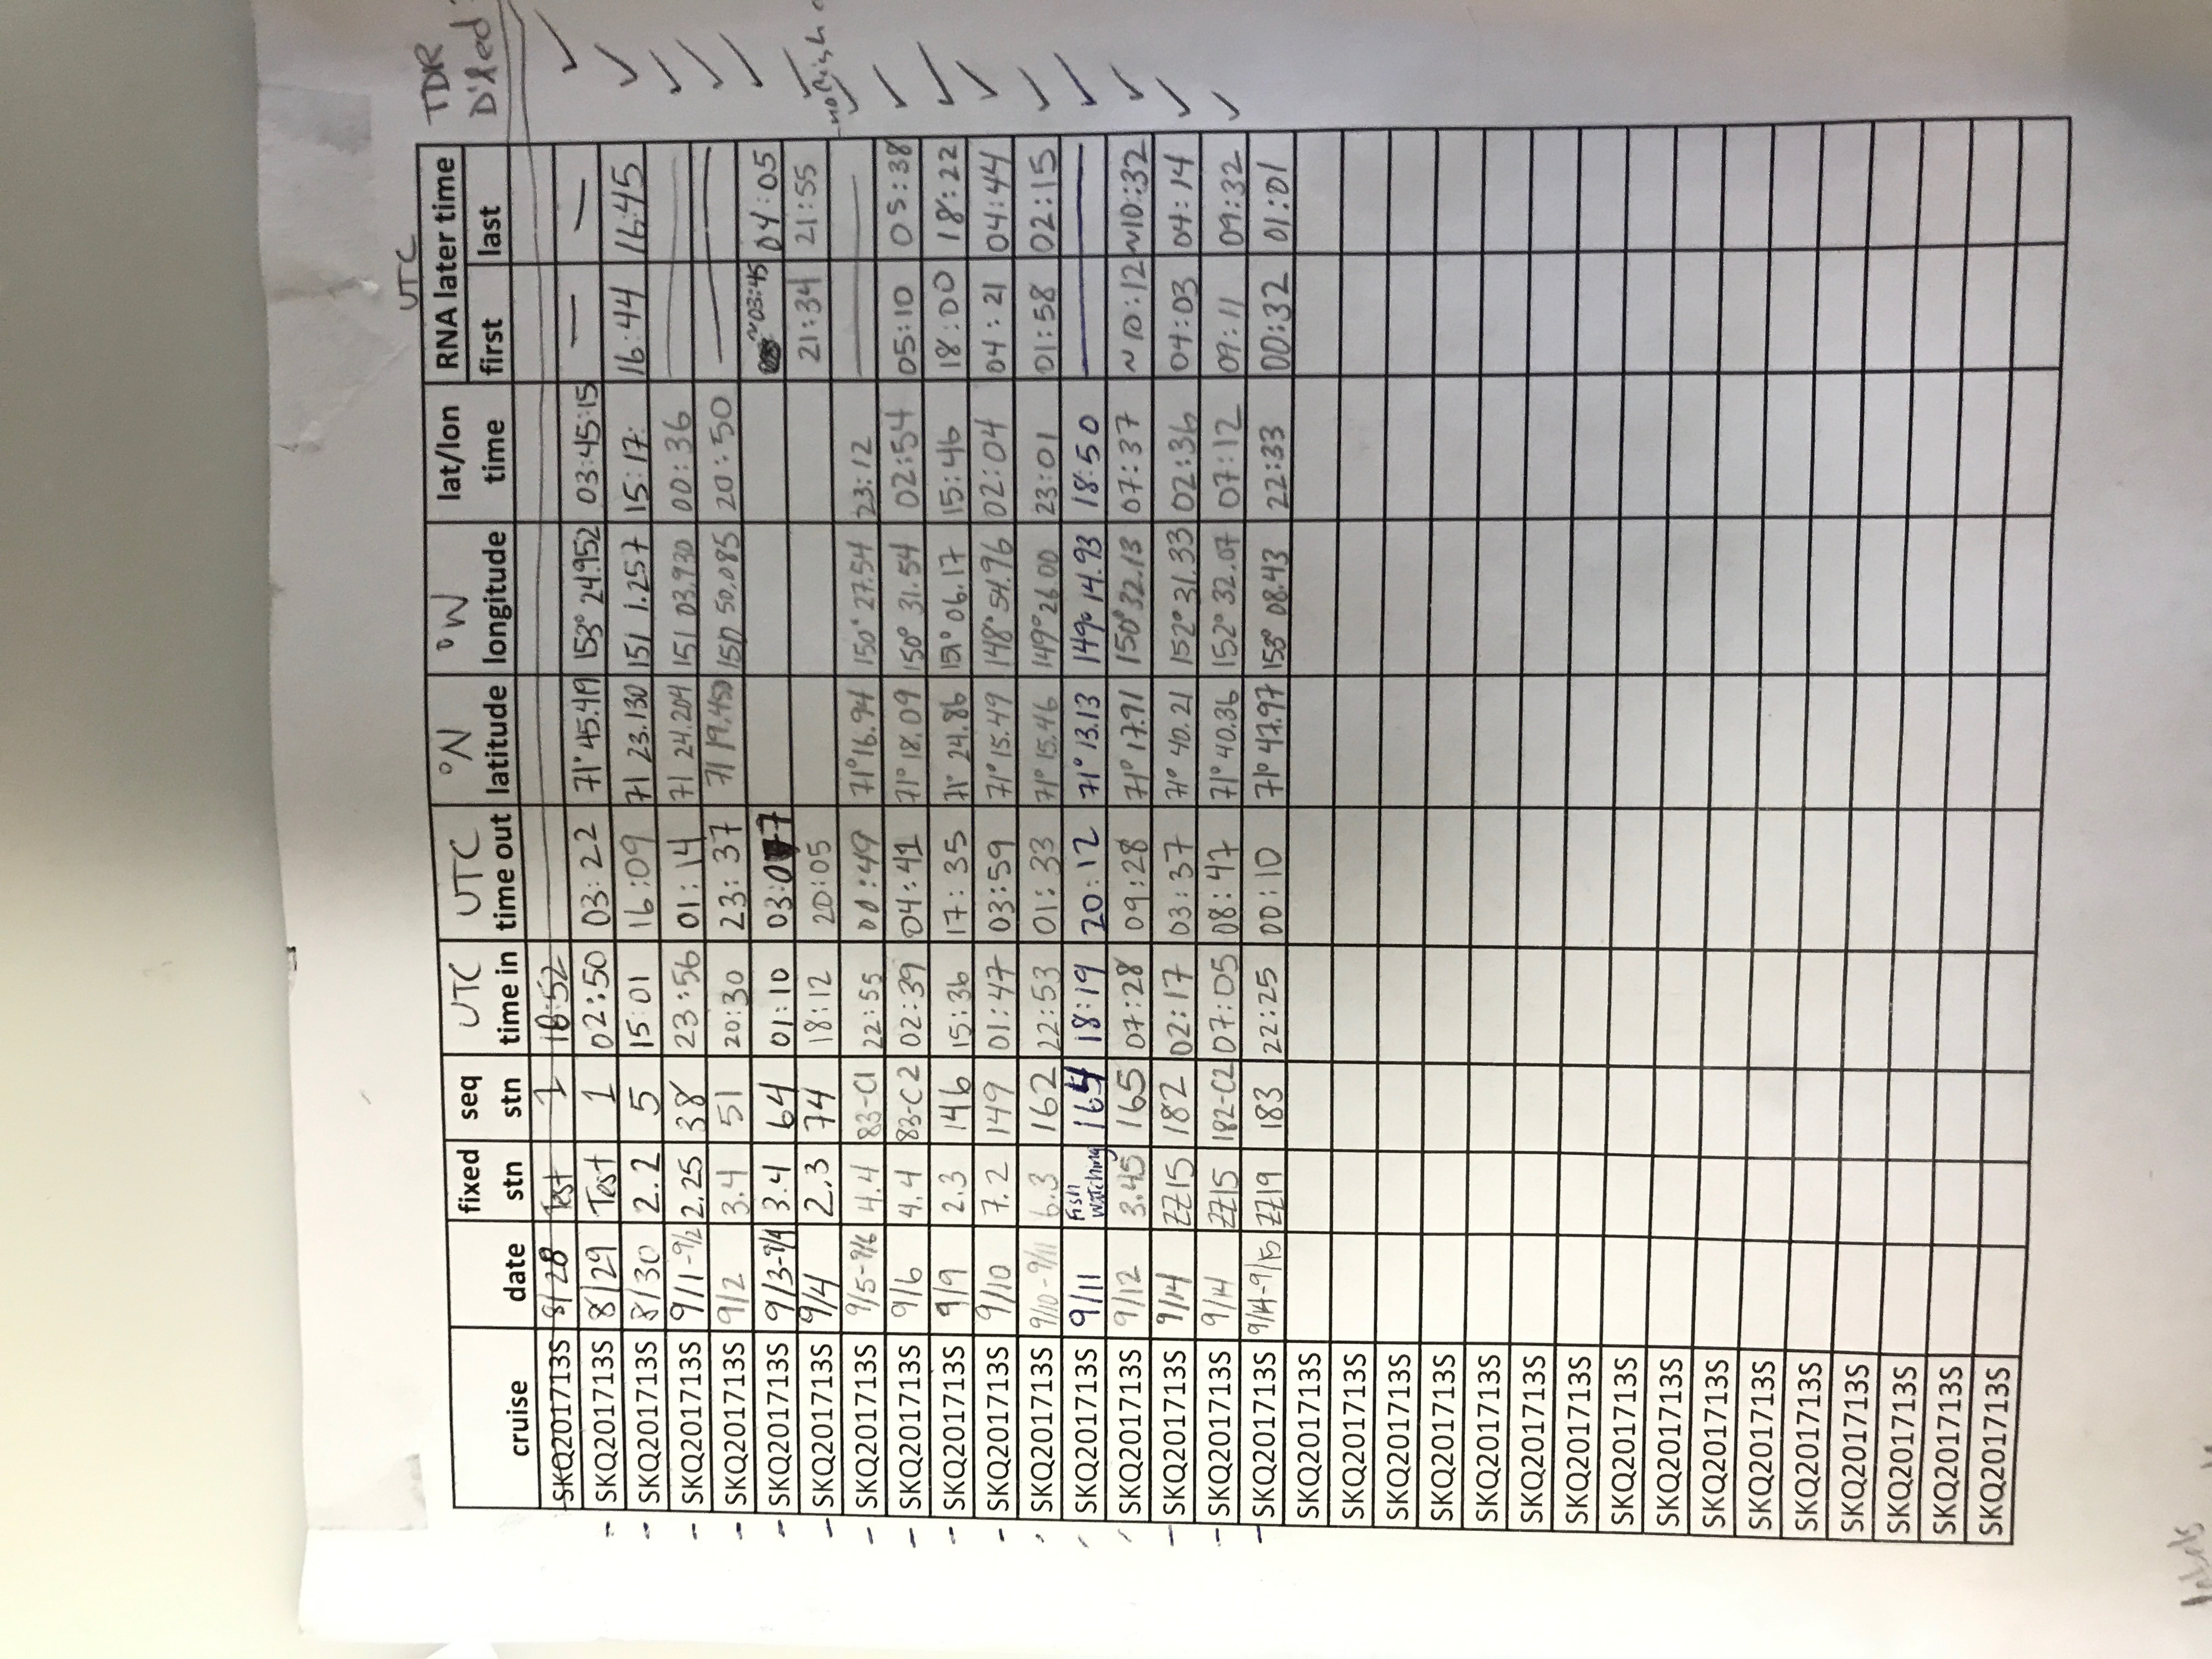 UTC
TDR
D'led?
RNA later time
fixed seq UTC UTC °N °W lat/lon
cruise date stn stn time in time out latitude longitude time first last
SKQ201713S 8/28 Test 1 18:52
SKQ201713S 8/29 Test 1 02:50 03:22 71° 45.419 153° 24.952 03:45:15 — — ✓
- SKQ201713S 8/30 2.2 5 15:01 16:09 71 23.130 151 1.257 15:17: 16:44 16:45 ✓
- SKQ201713S 9/1-9/2 2.25 38 23:56 01:14 71 24.204 151 03.930 00:36 — ✓
- SKQ201713S 9/2 3.4 51 20:30 23:37 71 19.450 150 50.085 20:50 — ✓
- SKQ201713S 9/3-9/4 3.4 64 01:10 03:07 ~03:45 04:05 ✓
- SKQ201713S 9/4 2.3 74 18:12 20:05 21:34 21:55 ✓
- SKQ201713S 9/5-9/6 4.4 83-C1 22:55 00:49 71° 16.94 150° 27.54 23:12 — ✓
- SKQ201713S 9/6 4.4 83-C2 02:39 04:41 71° 18.09 150° 31.54 02:54 05:10 05:38 ✓
- SKQ201713S 9/9 2.3 146 15:36 17:35 71° 24.86 151° 06.17 15:46 18:00 18:22 ✓
- SKQ201713S 9/10 7.2 149 01:47 03:59 71° 15.49 148° 54.96 02:04 04:21 04:44 ✓
SKQ201713S 9/10-9/11 6.3 162 22:53 01:33 71° 15.46 149° 26.00 23:01 01:58 02:15 ✓
SKQ201713S 9/11 Fish watching 164 18:19 20:12 71° 13.13 149° 14.93 18:50 — ✓
SKQ201713S 9/12 3.45 165 07:28 09:28 71° 17.91 150° 32.13 07:37 ~10:12 ~10:32 ✓
- SKQ201713S 9/14 ZZ15 182 02:17 03:37 71° 40.21 152° 31.33 02:36 04:03 04:14 ✓
- SKQ201713S 9/14 ZZ15 182-C2 07:05 08:47 71° 40.36 152° 32.07 07:12 09:11 09:32 ✓
- SKQ201713S 9/14-9/15 ZZ19 183 22:25 00:10 71° 47.97 153° 08.43 22:33 00:32 01:01
SKQ201713S
SKQ201713S
SKQ201713S
SKQ201713S
SKQ201713S
SKQ201713S
SKQ201713S
SKQ201713S
SKQ201713S
SKQ201713S
SKQ201713S
SKQ201713S
SKQ201713S
SKQ201713S
SKQ201713S
SKQ201713S
labels